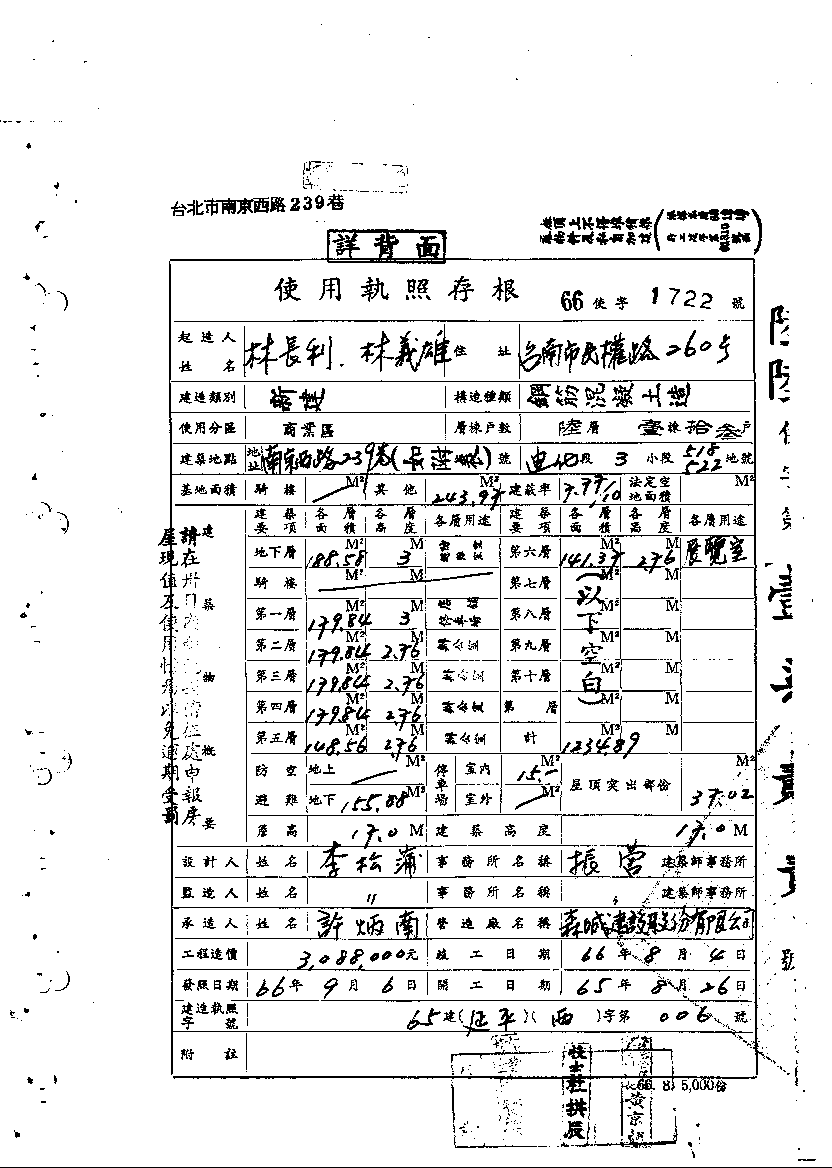 台北市南京西路239巷
詳背面
使用執照存根
66 使字 1722 號
起造人姓名 林長利、林義雄 住址 台南市民權路260号
建造類別 新建 構造種類 鋼筋混凝土造
使用分區 商業區 層棟戶數 陸層 壹棟 拾叁戶
建築地點 地址 南京西路239巷 號 迪化段 3 小段 518 522 地號
基地面積 騎樓 M² 其他 243.97 M² 建蔽率 7.77/10 法定空地面積 M²
建築要項 各層面積 各層高度 各層用途 建築要項 各層面積 各層高度 各層用途
地下層 188.58 M² 3 M 第六層 141.37 M² 2.76 M 展覽室
騎樓 M² M 第七層 M² M
第一層 179.84 M² 3 M 第八層 M² M
第二層 179.84 M² 2.76 M 第九層 M² M
第三層 179.84 M² 2.76 M 第十層 M² M
第四層 179.84 M² 2.76 M 第 層 M² M
第五層 148.56 M² 2.76 M 計 1234.89 M²
(以下空白)
建築物概要
防空避難 地上 M² 停車場 室內 15.- M² 屋頂突出部份 37.02 M²
地下 155.88 M² 室外 M²
簷高 17.0 M 建築高度 17.0 M
設計人 姓名 李松蒲 事務所名稱 振營 建築師事務所
監造人 姓名 〃 事務所名稱 〃 建築師事務所
承造人 姓名 許炳南 營造廠名稱 森城建設股份有限公司
工程造價 3,088,000元 竣工日期 66年8月4日
發照日期 66年9月6日 開工日期 65年8月26日
建造執照字號 65建(延平)(西)字第006號
附註
66. 8. 5,000份
技士杜拱辰
黃京
號